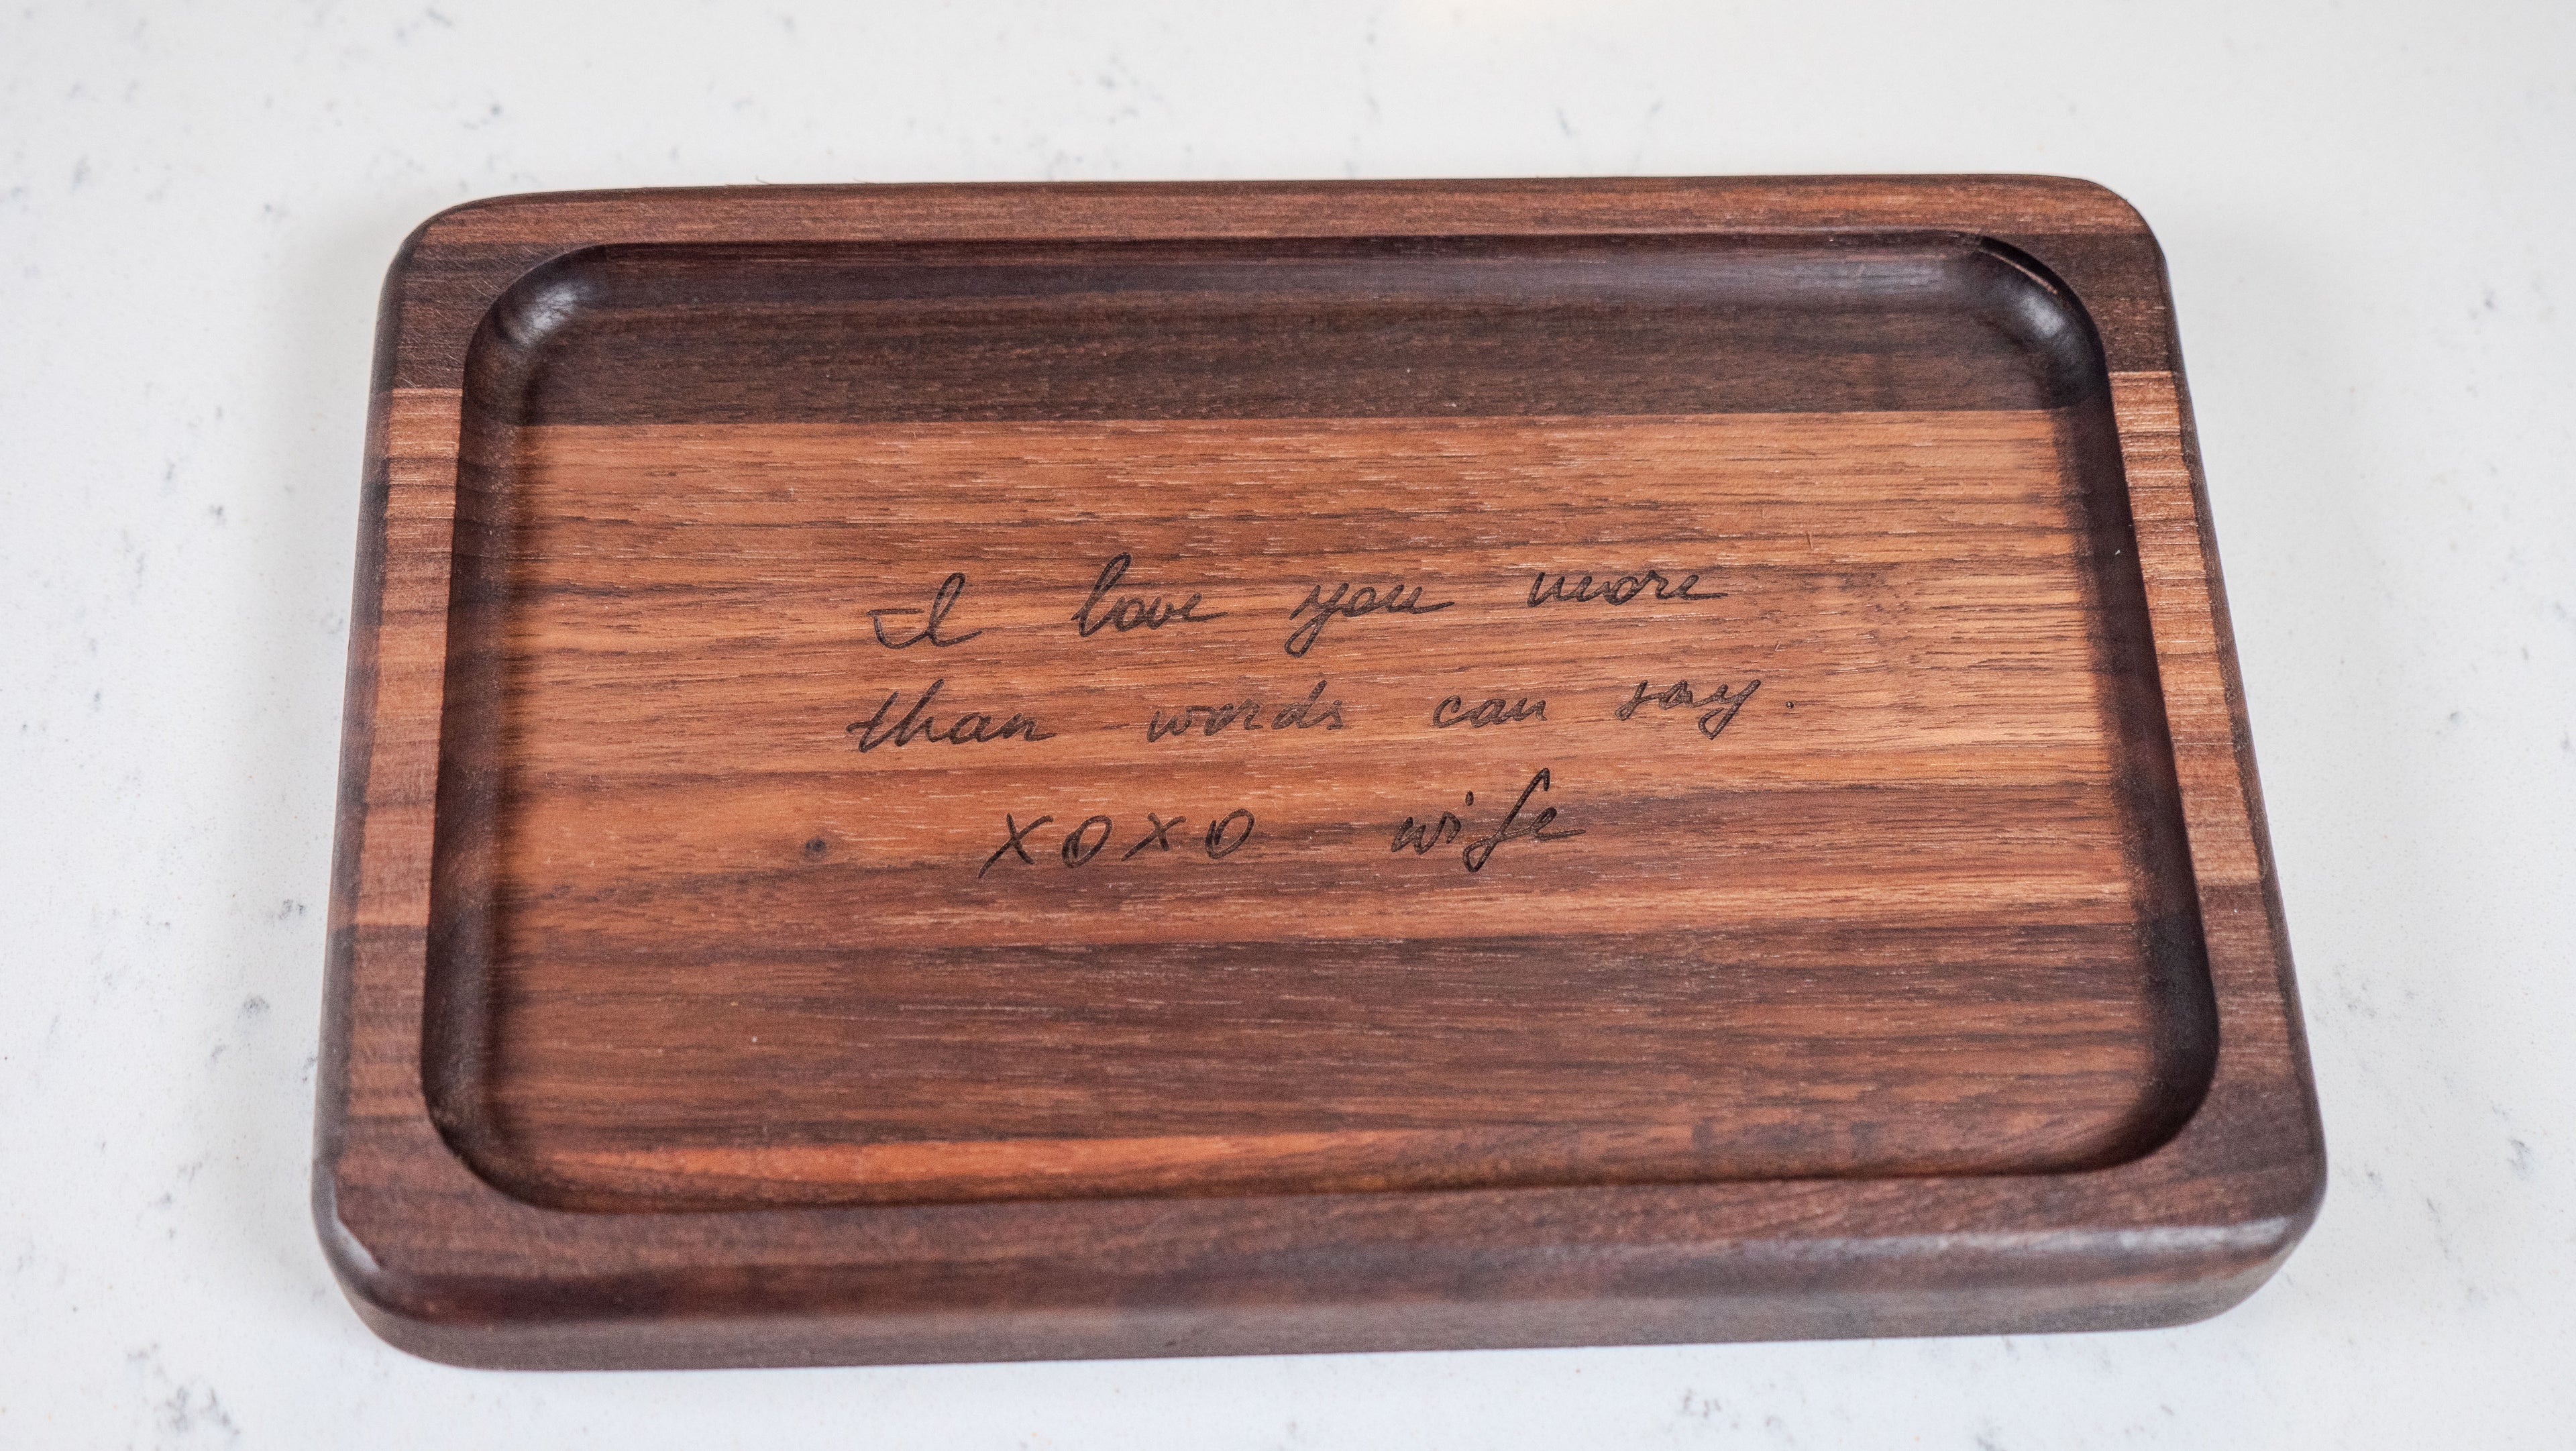 I love you more
than words can say.
xoxo wife